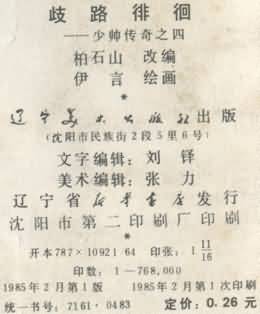 歧路徘徊
——少帅传奇之四
柏石山 改编
伊言 绘画
*
辽宁美术出版社出版
(沈阳市民族街2段5里6号)
文字编辑: 刘铎
美术编辑: 张力
辽宁省新华书店发行
沈阳市第二印刷厂印刷
*
开本787×1092 1/64 印张: 1 11/16
印数: 1—768,000
1985年2月第1版 1985年2月第1次印刷
统一书号: 7161·0483 定价: 0.26元